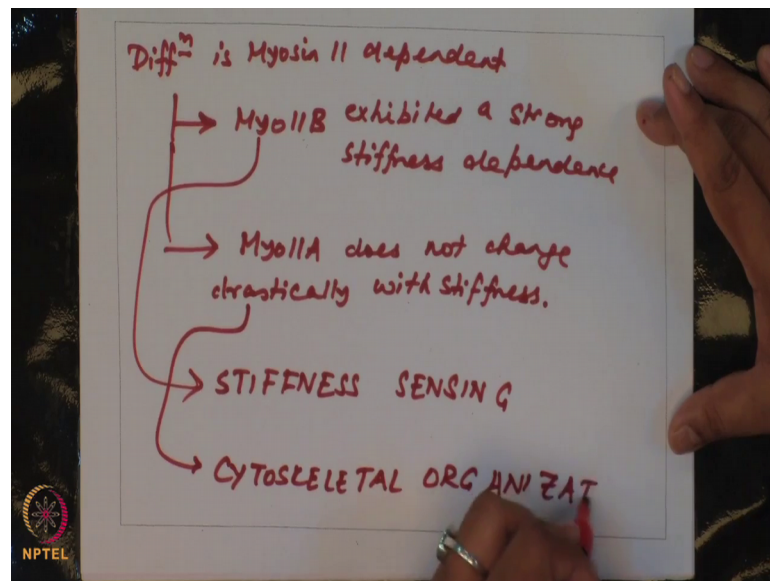 Diffⁿ is Myosin II dependent
MyoIIB exhibited a strong
stiffness dependence
MyoIIA does not change
drastically with stiffness.
STIFFNESS SENSING
CYTOSKELETAL ORGANIZAT
NPTEL